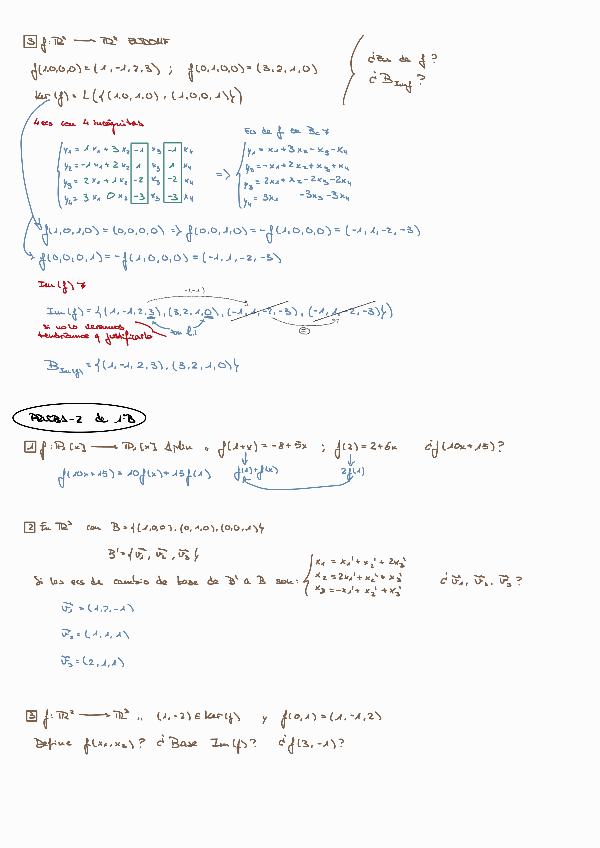 3 f: ℝ⁴ → ℝ⁴ ENDOMF
f(1,0,0,0) = (1,-1,2,3) ; f(0,1,0,0) = (3,2,1,0)
Ker(f) = L({(1,0,1,0), (1,0,0,1)})
¿Ecs de f?
¿B Imf?
4 ecs con 4 incógnitas
y₁ = 1x₁ + 3x₂ -1 x₃ -1 x₄
y₂ = -1x₁ + 2x₂ 1 x₃ 1 x₄
y₃ = 2x₁ + 1x₂ -2 x₃ -2 x₄
y₄ = 3x₁ 0x₂ -3 x₃ -3 x₄
=>
Ecs de f en Bc
y₁ = x₁ + 3x₂ - x₃ - x₄
y₂ = -x₁ + 2x₂ + x₃ + x₄
y₃ = 2x₁ + x₂ - 2x₃ - 2x₄
y₄ = 3x₁ -3x₃ - 3x₄
f(1,0,1,0) = (0,0,0,0) => f(0,0,1,0) = -f(1,0,0,0) = (-1,1,-2,-3)
f(0,0,0,1) = -f(1,0,0,0) = (-1,1,-2,-3)
Im(f)
·(-1)
Im(f) = {(1,-1,2,3), (3,2,1,0), (-1,1,-2,-3), (-1,1,-2,-3)}
si no lo vemos
tendríamos q justificarlo
son l.i
=
B Im(f) = {(1,-1,2,3), (3,2,1,0)}
PRUEBA-2 de 1ºB
1 f: ℙ₁[x] → ℙ₁[x] Aplin ,, f(1+x) = -8+5x ; f(2) = 2+6x ¿f(10x+15)?
f(10x+15) = 10f(x) + 15f(1) f(1)+f(x) 2f(1)
2 En ℝ³ con B = {(1,0,0), (0,1,0), (0,0,1)}
B' = {v₁, v₂, v₃}
Si las ecs de cambio de base de B' a B son:
x₁ = x₁' + x₂' + 2x₃'
x₂ = 2x₁' + x₂' + x₃'
x₃ = -x₁' + x₂' + x₃'
¿v₁, v₂, v₃?
v₁ = (1,2,-1)
v₂ = (1,1,1)
v₃ = (2,1,1)
3 f: ℝ² → ℝ³ ,, (1,-2) ∈ Ker(f) y f(0,1) = (1,-1,2)
Define f(x₁,x₂)? ¿Base Im(f)? ¿f(3,-1)?